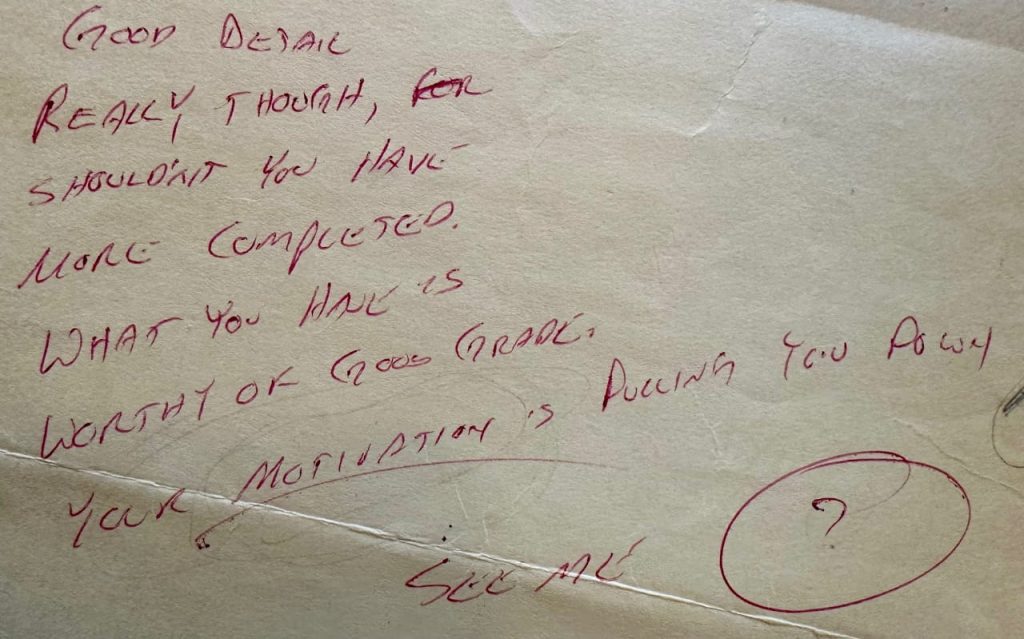 GOOD DETAIL
REALLY THOUGH, FOR
SHOULDN'T YOU HAVE
MORE COMPLETED.
WHAT YOU HAVE IS
WORTHY OF GOOD GRADE.
YOUR MOTIVATION IS PULLING YOU DOWN
SEE ME ?